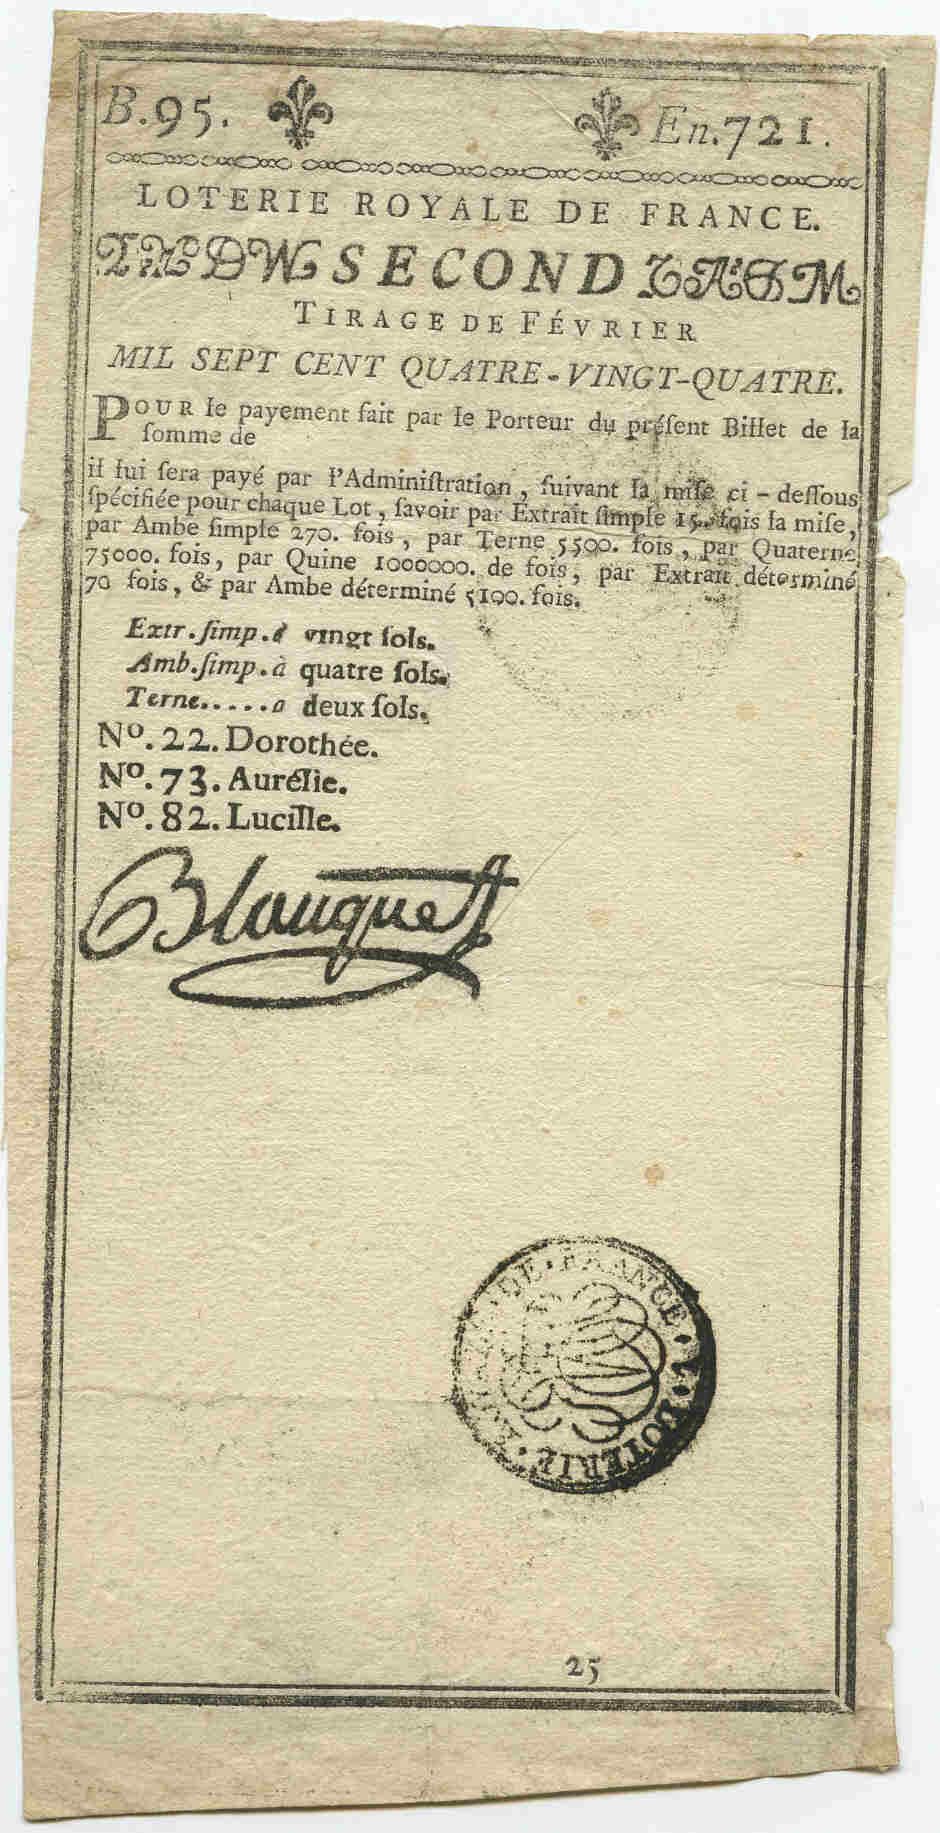 B.95. En.721.
LOTERIE ROYALE DE FRANCE.
SECOND
TIRAGE DE FÉVRIER
MIL SEPT CENT QUATRE-VINGT-QUATRE.
POUR le payement fait par le Porteur du préſent Billet de la
ſomme de
il lui ſera payé par l'Adminiſtration, ſuivant la miſe ci-deſſous
ſpécifiée pour chaque Lot, ſavoir par Extrait ſimple 15. fois la miſe,
par Ambe ſimple 270. fois, par Terne 5500. fois, par Quaterne
75000. fois, par Quine 1000000. de fois, par Extrait déterminé
70 fois, & par Ambe déterminé 5100. fois.
Extr.ſimp.à vingt ſols.
Amb.ſimp.à quatre ſols.
Terne.....a deux ſols.
Nº.22.Dorothée.
Nº.73.Aurélie.
Nº.82.Lucille.
Blouquet
DE FRANCE • V • LOTERIE •
25